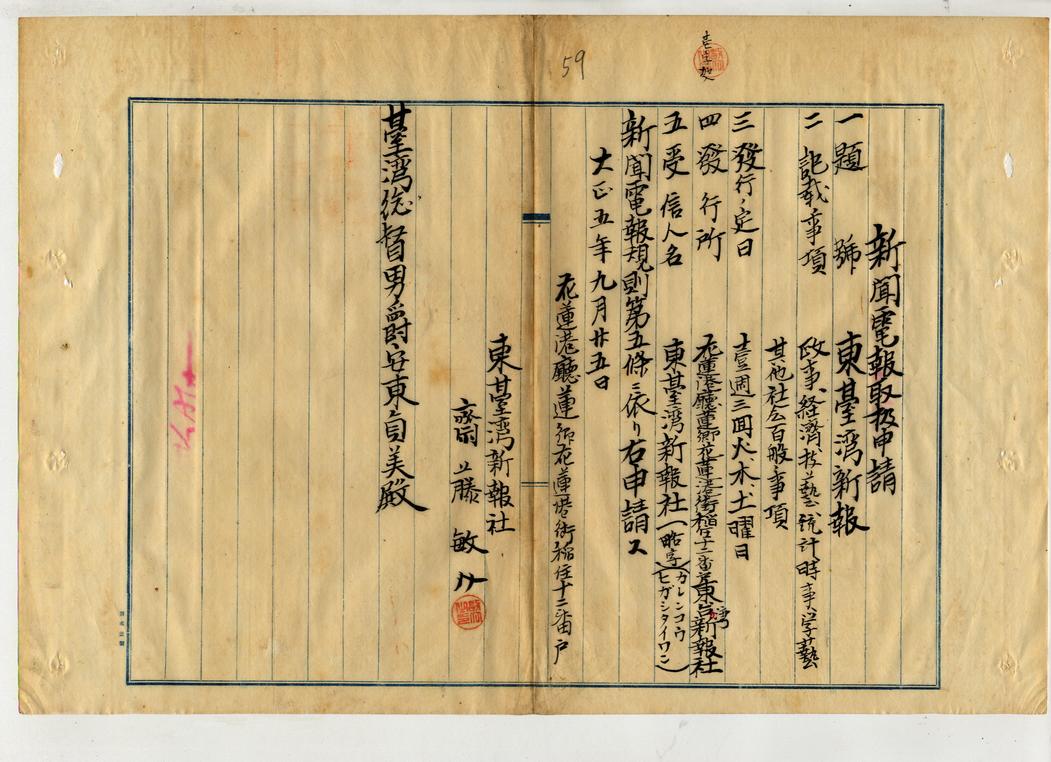 59
壱字加
新聞電報取扱申請
一 題號 東臺湾新報
二 記載事項 政事、経濟、技藝、統計時事学藝
其他社会百般ノ事項
三 發行ノ定日 壹週三回火、木、土曜日
四 發行所 花蓮港廳蓮郷花蓮港街稲住十二番戸東台湾新報社
五 受信人名 東臺湾新報社(略字)(カレンコウ ヒガシタイワン)
新聞電報規則第五條ニ依リ右申請ス
大正五年九月廿五日
花蓮港廳蓮郷花蓮港街稲住十二番戸
東臺湾新報社
齋藤敏
臺湾総督男爵安東貞美殿